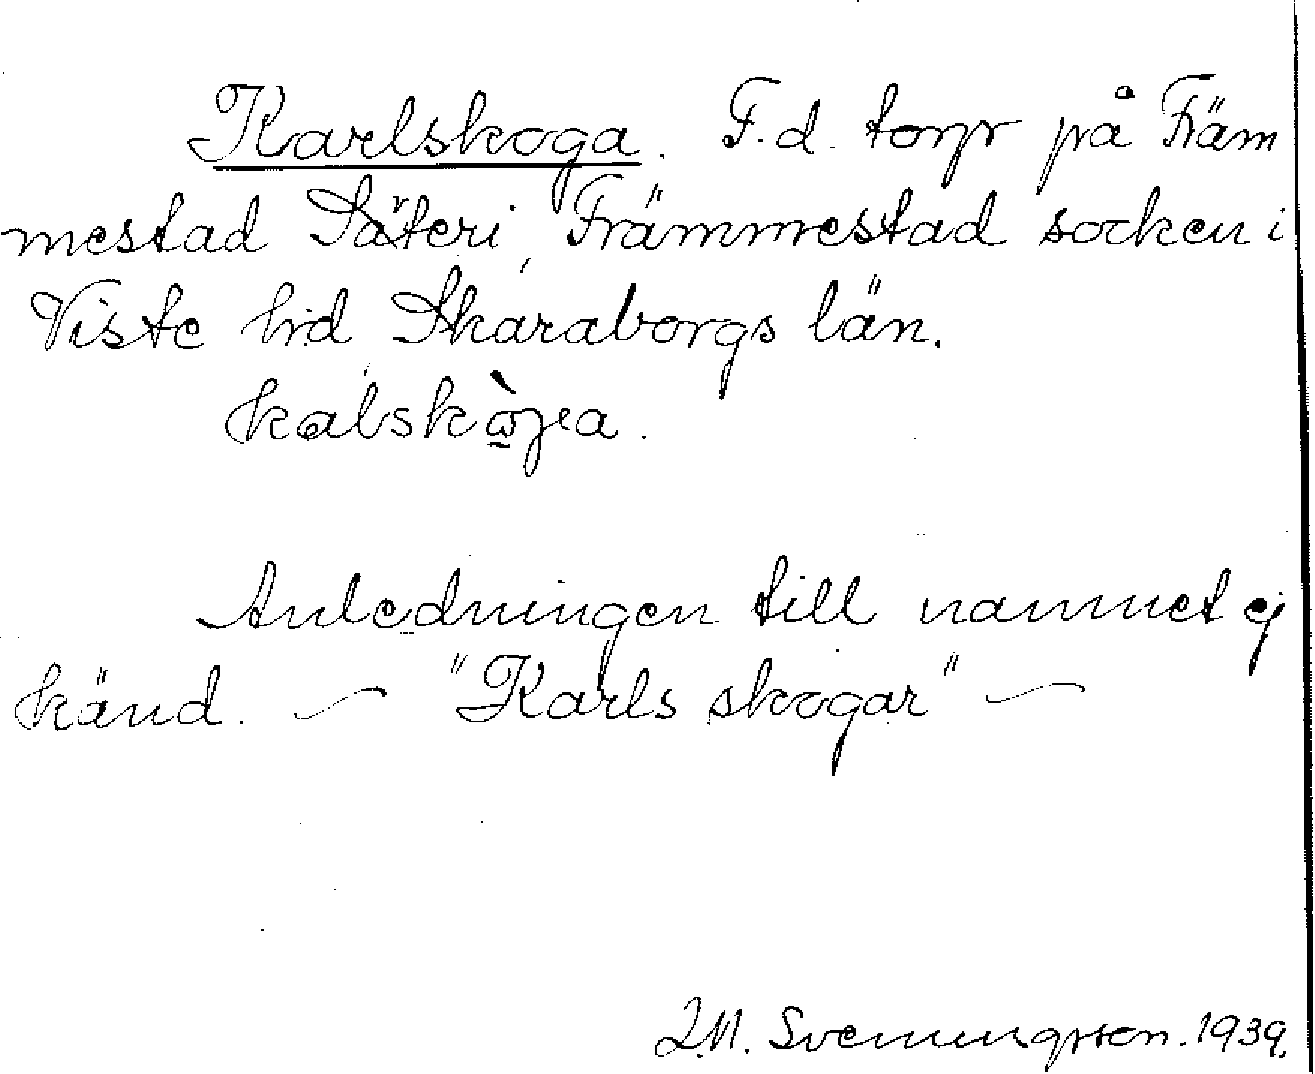 Karlskoga. F.d. torp på Främ
mestad Säteri, Främmestad socken i
Viste hd Skaraborgs län.
Anledningen till namnet ej
känd. — "Karls skogar" —
Svenningsson. 1939.